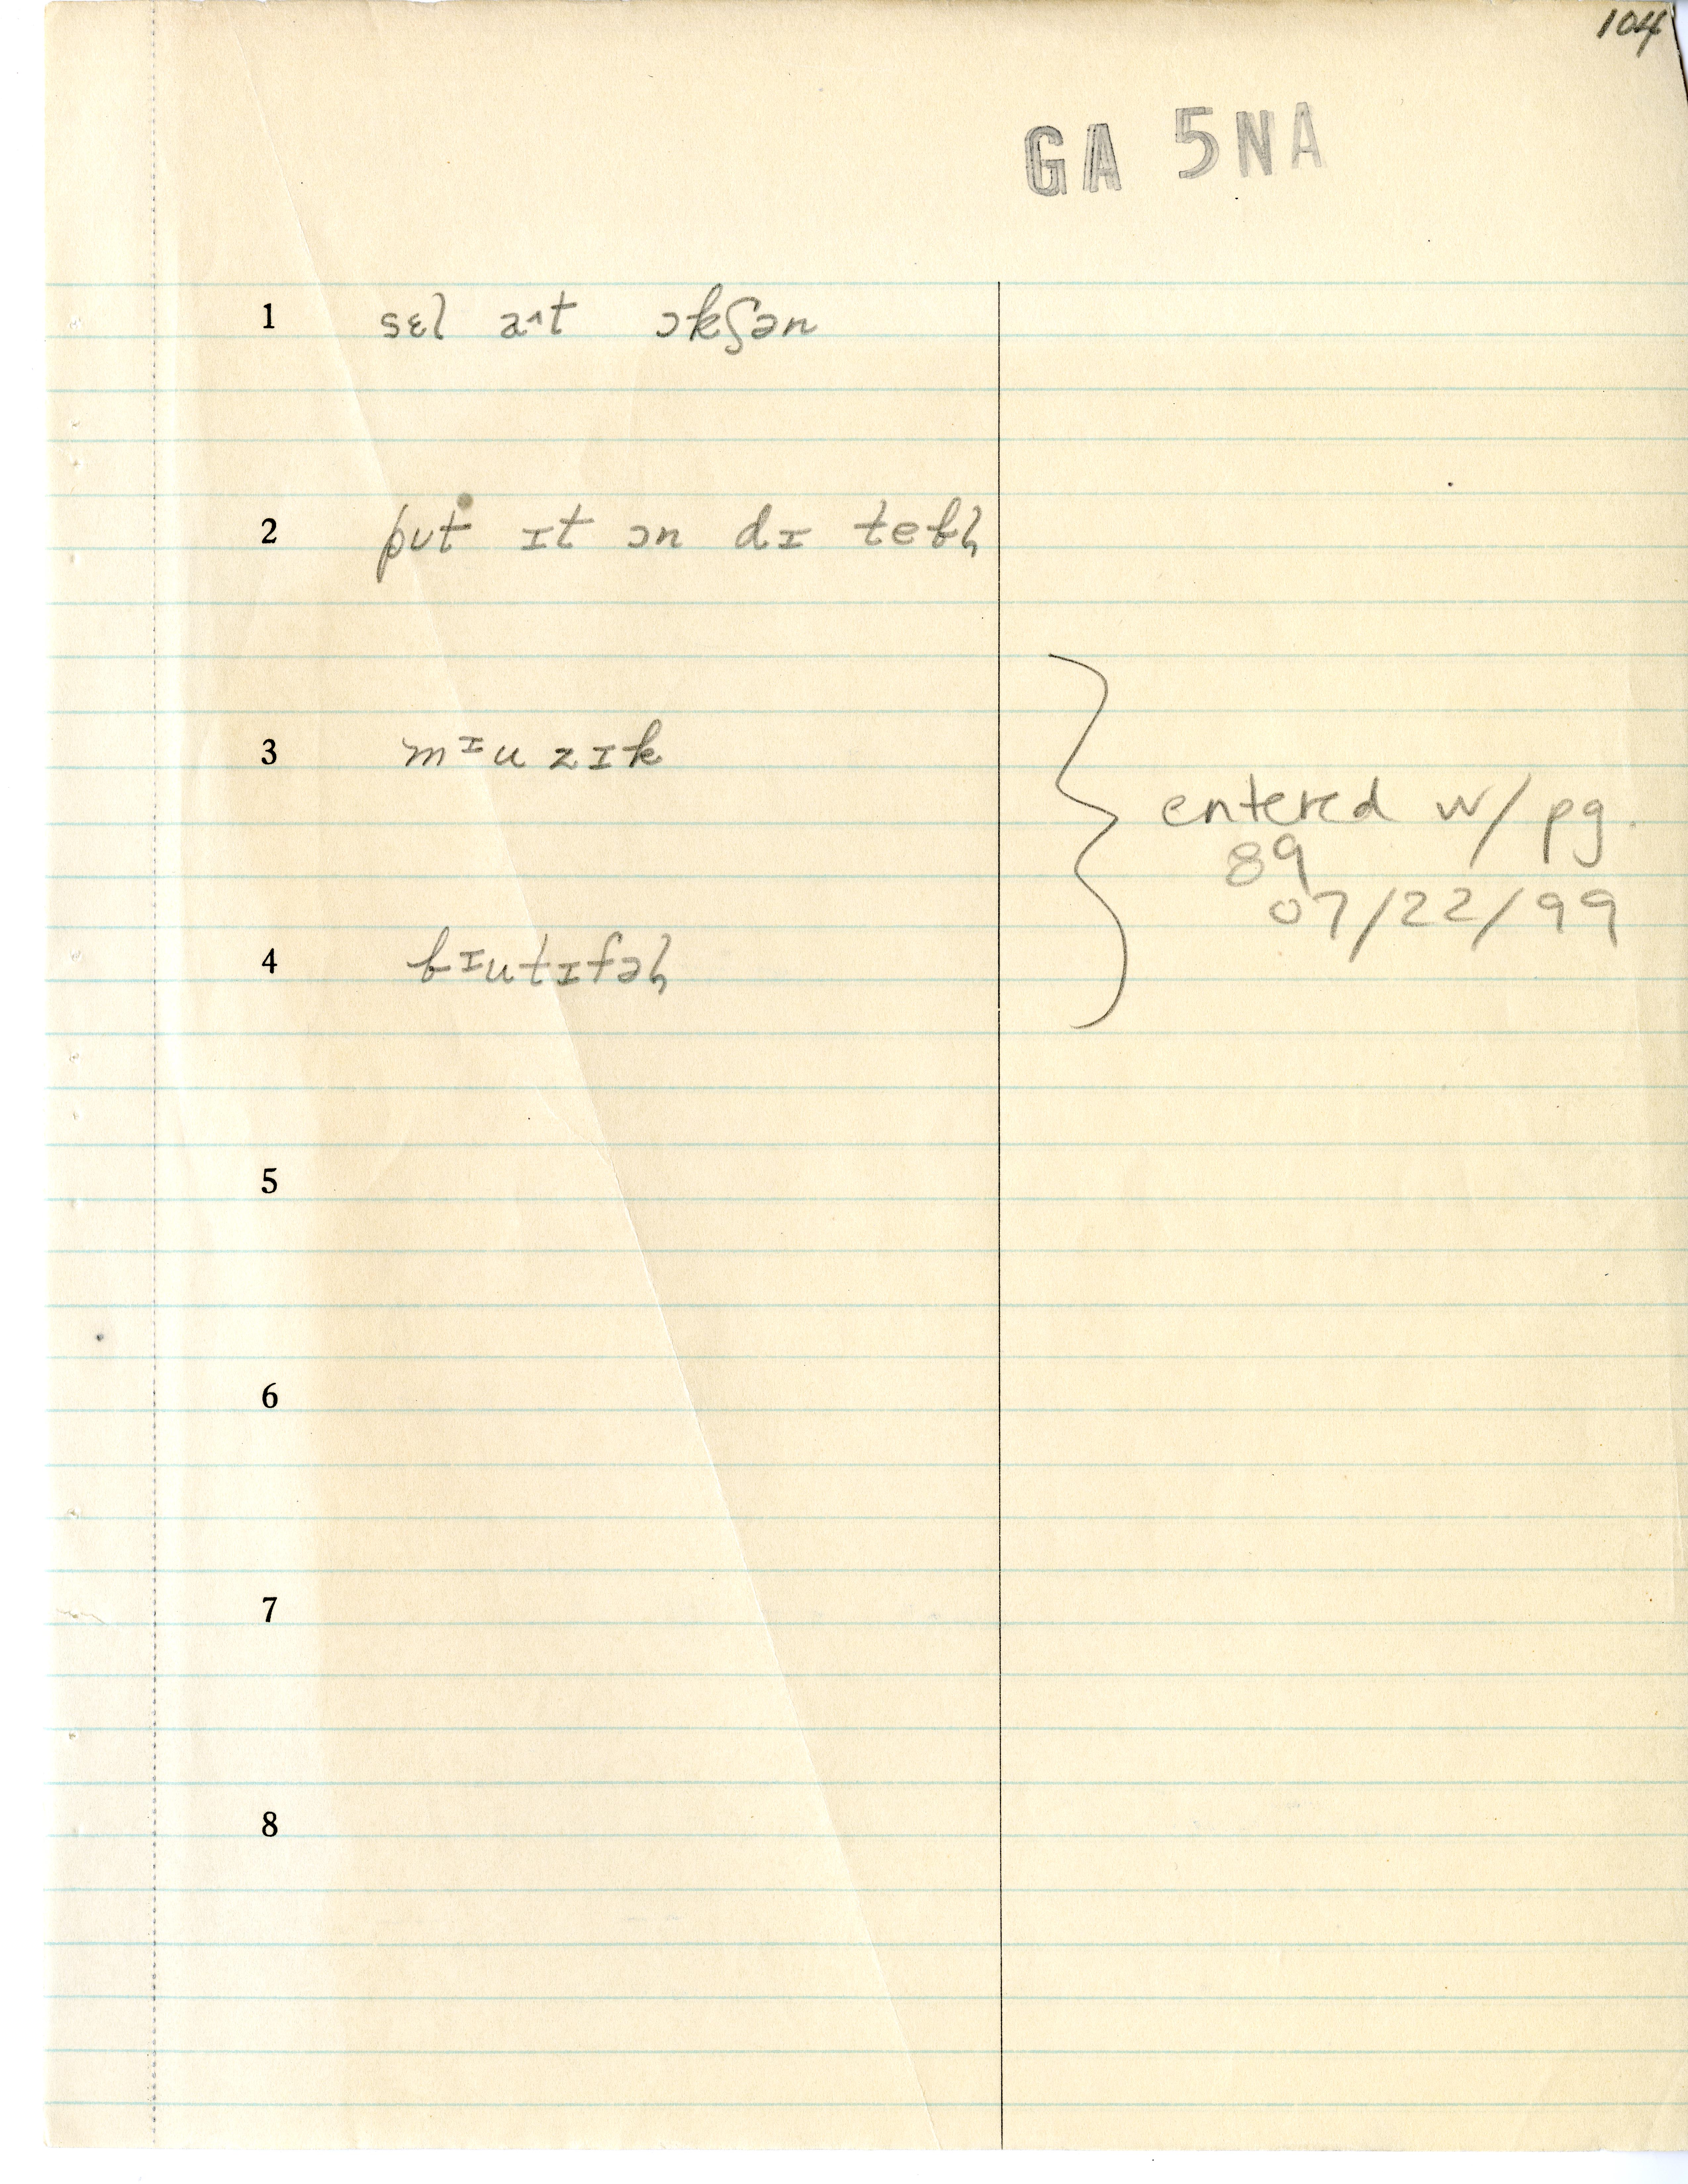 104
GA 5NA
1 sɛl aᶺt ɔkʃən
2 put ɪt ɔn dɪ tebl̩
3 mᶦuzɪk
entered w/ pg.
89
07/22/99
4 bᶦutɪfəl̩
5
6
7
8